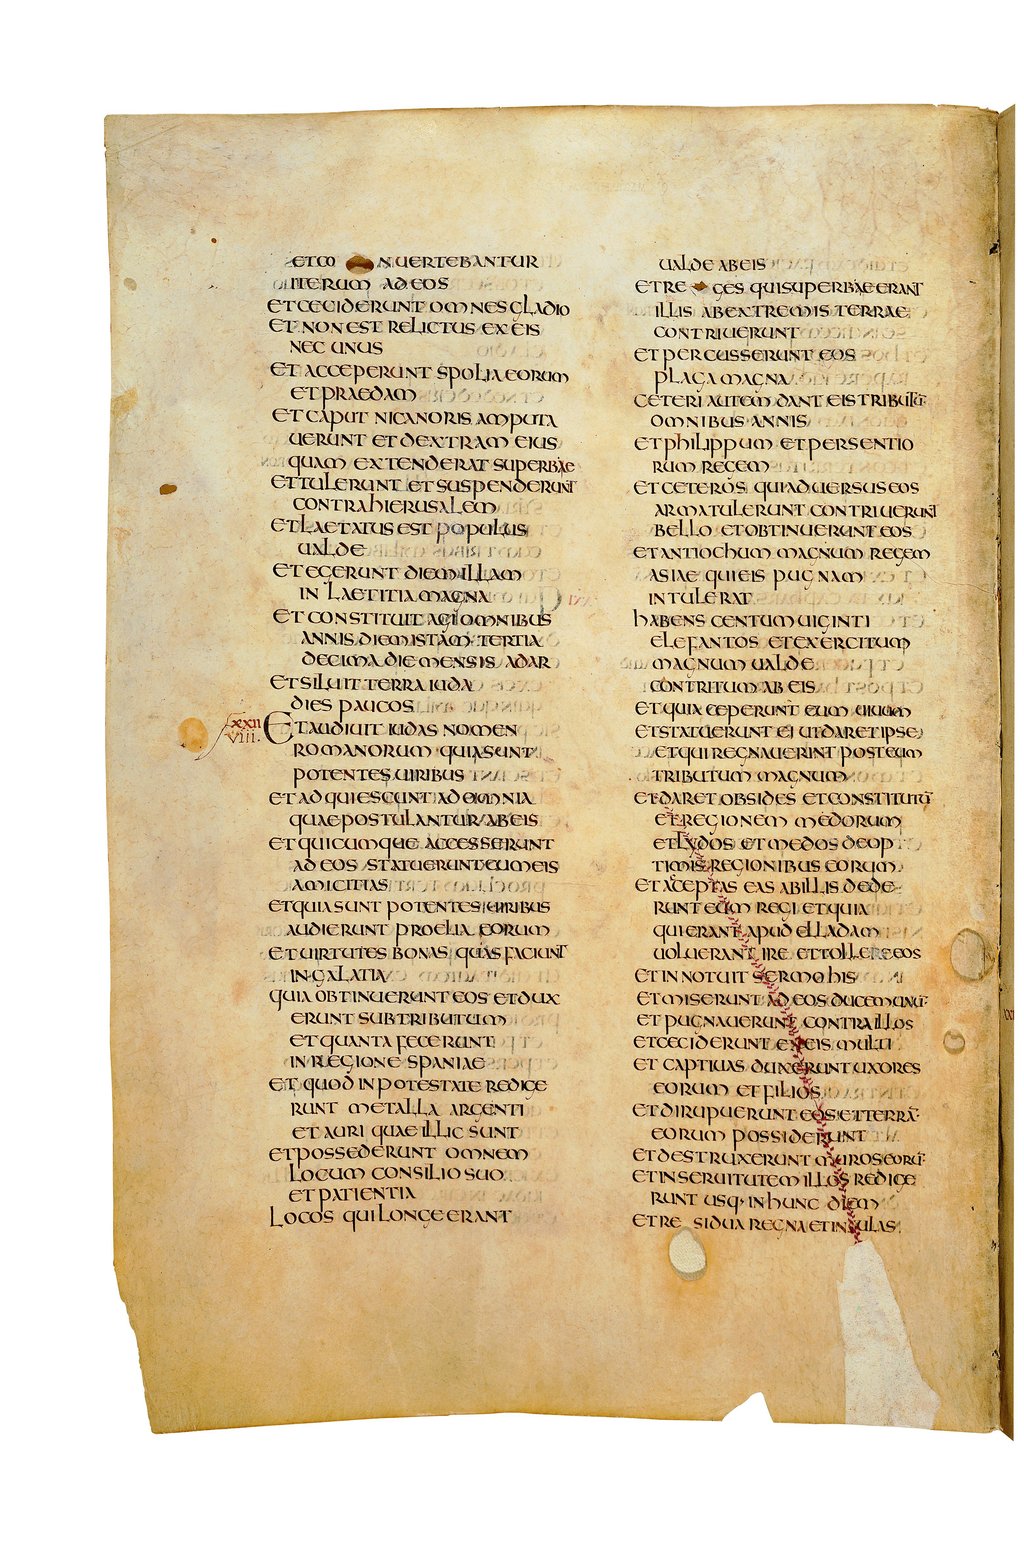 ETCO NUERTEBANTUR
ITERUM AD EOS
ET CECIDERUNT OMNES GLADIO
ET NON EST RELICTUS EX EIS
NEC UNUS
ET ACCEPERUNT SPOLIA EORUM
ET PRAEDAM
ET CAPUT NICANORIS AMPUTA
UERUNT ET DEXTRAM EIUS
QUAM EXTENDERAT SUPERBAE
ET TULERUNT ET SUSPENDERUNT
CONTRA HIERUSALEM
ET LAETATUS EST POPULUS
UALDE
ET EGERUNT DIEM ILLAM
IN LAETITIA MAGNA
ET CONSTITUIT AGI OMNIBUS
ANNIS DIEM ISTAM TERTIA
DECIMA DIE MENSIS ADAR
ET SILUIT TERRA IUDA
DIES PAUCOS
XXII
VIII.
ET AUDIUIT IUDAS NOMEN
ROMANORUM QUIA SUNT
POTENTES UIRIBUS
ET ADQUIESCUNT AD OMNIA
QUAE POSTULANTUR AB EIS
ET QUICUMQUE ACCESSERUNT
AD EOS STATUERUNT CUM EIS
AMICITIAS
ET QUIA SUNT POTENTES UIRIBUS
AUDIERUNT PROELIA EORUM
ET UIRTUTES BONAS QUAS FACIUNT
IN GALATIA
QUIA OBTINUERUNT EOS ET DUX
ERUNT SUB TRIBUTUM
ET QUANTA FECERUNT
IN REGIONE SPANIAE
ET QUOD IN POTESTATE REDIGE
RUNT METALLA ARGENTI
ET AURI QUAE ILLIC SUNT
ET POSSEDERUNT OMNEM
LOCUM CONSILIO SUO
ET PATIENTIA
LOCOS QUI LONGE ERANT
UALDE AB EIS
ET RE GES QUI SUPERBAE ERANT
ILLIS AB EXTREMIS TERRAE
CONTRIUERUNT
ET PERCUSSERUNT EOS
PLAGA MAGNA
CETERI AUTEM DANT EIS TRIBUTŪ
OMNIBUS ANNIS
ET PHILIPPUM ET PERSENTIO
RUM REGEM
ET CETEROS QUI ADUERSUS EOS
ARMA TULERUNT CONTRIUERUNT
BELLO ET OBTINUERUNT EOS
ET ANTIOCHUM MAGNUM REGEM
ASIAE QUI EIS PUGNAM
INTULERAT
HABENS CENTUM UIGINTI
ELEFANTOS ET EXERCITUM
MAGNUM UALDE
CONTRITUM AB EIS
ET QUIA CEPERUNT EUM UIUUM
ET STATUERUNT EI UT DARET IPSE
ET QUI REGNAUERINT POST EUM
TRIBUTUM MAGNUM
ET DARET OBSIDES ET CONSTITUTŪ
ET REGIONEM MEDORUM
ET LYDOS ET MEDOS DE OP
TIMIS REGIONIBUS EORUM
ET ACCEPTAS EAS AB ILLIS DEDE
RUNT EUM REGI ET QUIA
QUI ERANT APUD ELLADAM
UOLUERANT IRE ET TOLLERE EOS
ET INNOTUIT SERMO HIS
ET MISERUNT AD EOS DUCEM UNŪ
ET PUGNAUERUNT CONTRA ILLOS
ET CECIDERUNT EX EIS MULTI
ET CAPTIUAS DUXERUNT UXORES
EORUM ET FILIOS
ET DIRUPUERUNT EOS ET TERRĀ
EORUM POSSIDERUNT
ET DESTRUXERUNT MUROS EORŪ
ET IN SERUITUTEM ILLOS REDIGE
RUNT USQ· IN HUNC DIEM
ET RE SIDUA REGNA ET INSULAS